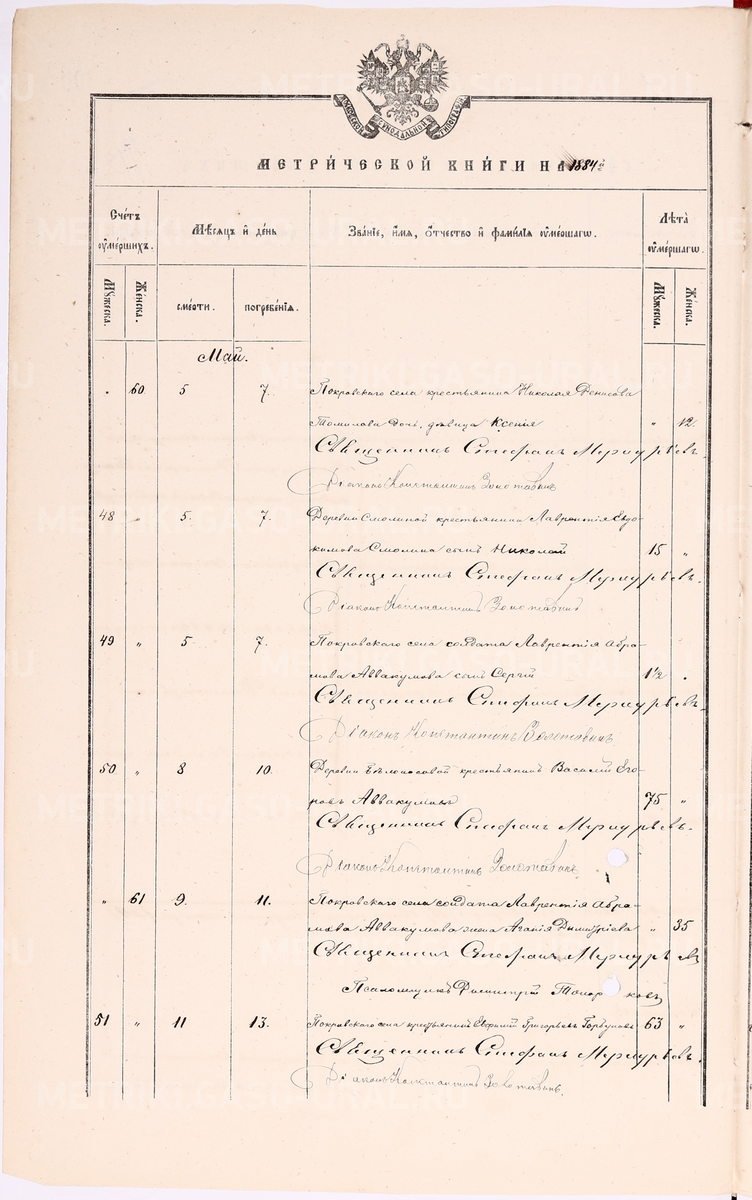 МОСКОВСКОЙ СѴНОДАЛЬНОЙ ТИПОГРАФІИ
МЕТРИ́ЧЕСКОЙ КНИ́ГИ НА 1884 й
Сче́тъ ᲂу҆ме́ршихъ. Мѣ́сяцъ и҆ де́нь Зва́нїе, и҆́мя, ѻ҆́тчество и҆ фами́лїя ᲂу҆ме́ршагѡ. Лѣта̀ ᲂу҆ме́ршагѡ.
Мꙋ́жеска. Же́нска. сме́рти. погребе́нїѧ. Мꙋ́жеска. Же́нска.
Май.
. 60 5 7. Покровскаго села крестьянина Николая Денисова
Томилова дочь, дѣвица Ксенья „ 12.
Священникъ Стефанъ Меркурьевъ.
Діаконъ Константинъ Золотавинъ
48 „ 5. 7. Деревни Смолиной крестьянина Лаврентія Евдо-
кимова Смолина сынъ Николай 15 „
Священникъ Стефанъ Меркурьевъ.
Діаконъ Константинъ Золотавинъ
49 „ 5 7. Покровскаго села солдата Лаврентія Абра-
мова Аввакумова сынъ Сергій 1½ .
Священникъ Стефанъ Меркурьевъ.
Діаконъ Константинъ Золотавинъ
50 „ 8 10. Деревни крестьянинъ Василій Его-
ровъ Аввакумовъ 75 „
Священникъ Стефанъ Меркурьевъ.
Діаконъ Константинъ Золотавинъ
„ 61 9. 11. Покровскаго села солдата Лаврентія Абра-
мова Аввакумова жена Агапія Димитріева „ 35
Священникъ Стефанъ Меркурьевъ
Псаломщикъ Димитрій Топорковъ
51 „ 11 13. Покровскаго села крестьянинъ Евфимій Григорьевъ Горбуновъ 63 „
Священникъ Стефанъ Меркурьевъ.
Діаконъ Константинъ Золотавинъ.